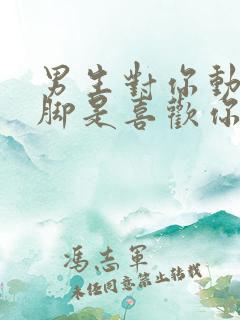 男生對你動
腳是喜歡你
馮志軍
未經同意禁止轉載